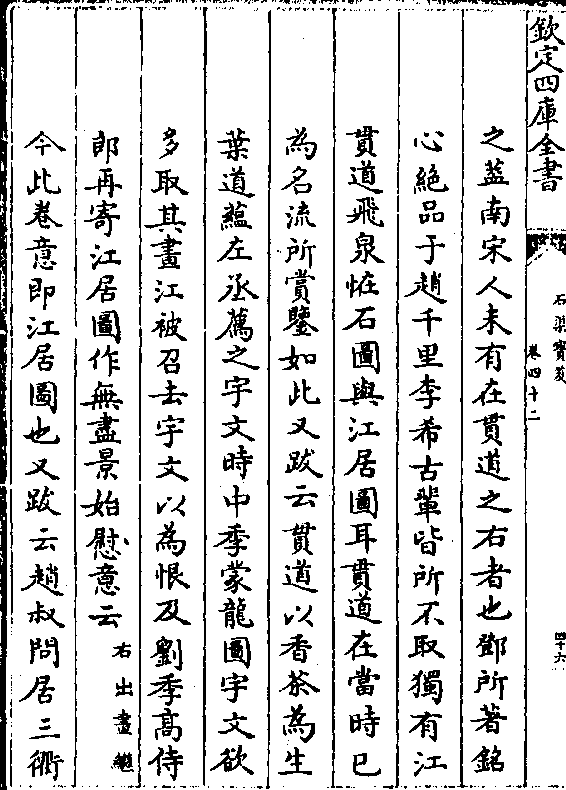 欽定四庫全書
石渠寶笈
卷四十二
四十六
之葢南宋人未有在貫道之右者也鄧所著銘
心絶品于趙千里李希古輩皆所不取獨有江
貫道飛泉恠石圖與江居圖耳貫道在當時已
為名流所賞鑒如此又跋云貫道以香茶為生
葉道藴左丞薦之宇文時中季蒙龍圖宇文欲
多取其畫江被召去宇文以為恨及劉季髙侍
郎再寄江居圖作無盡景始慰意云右出畫繼
今此卷意即江居圖也又跋云趙叔問居三衢